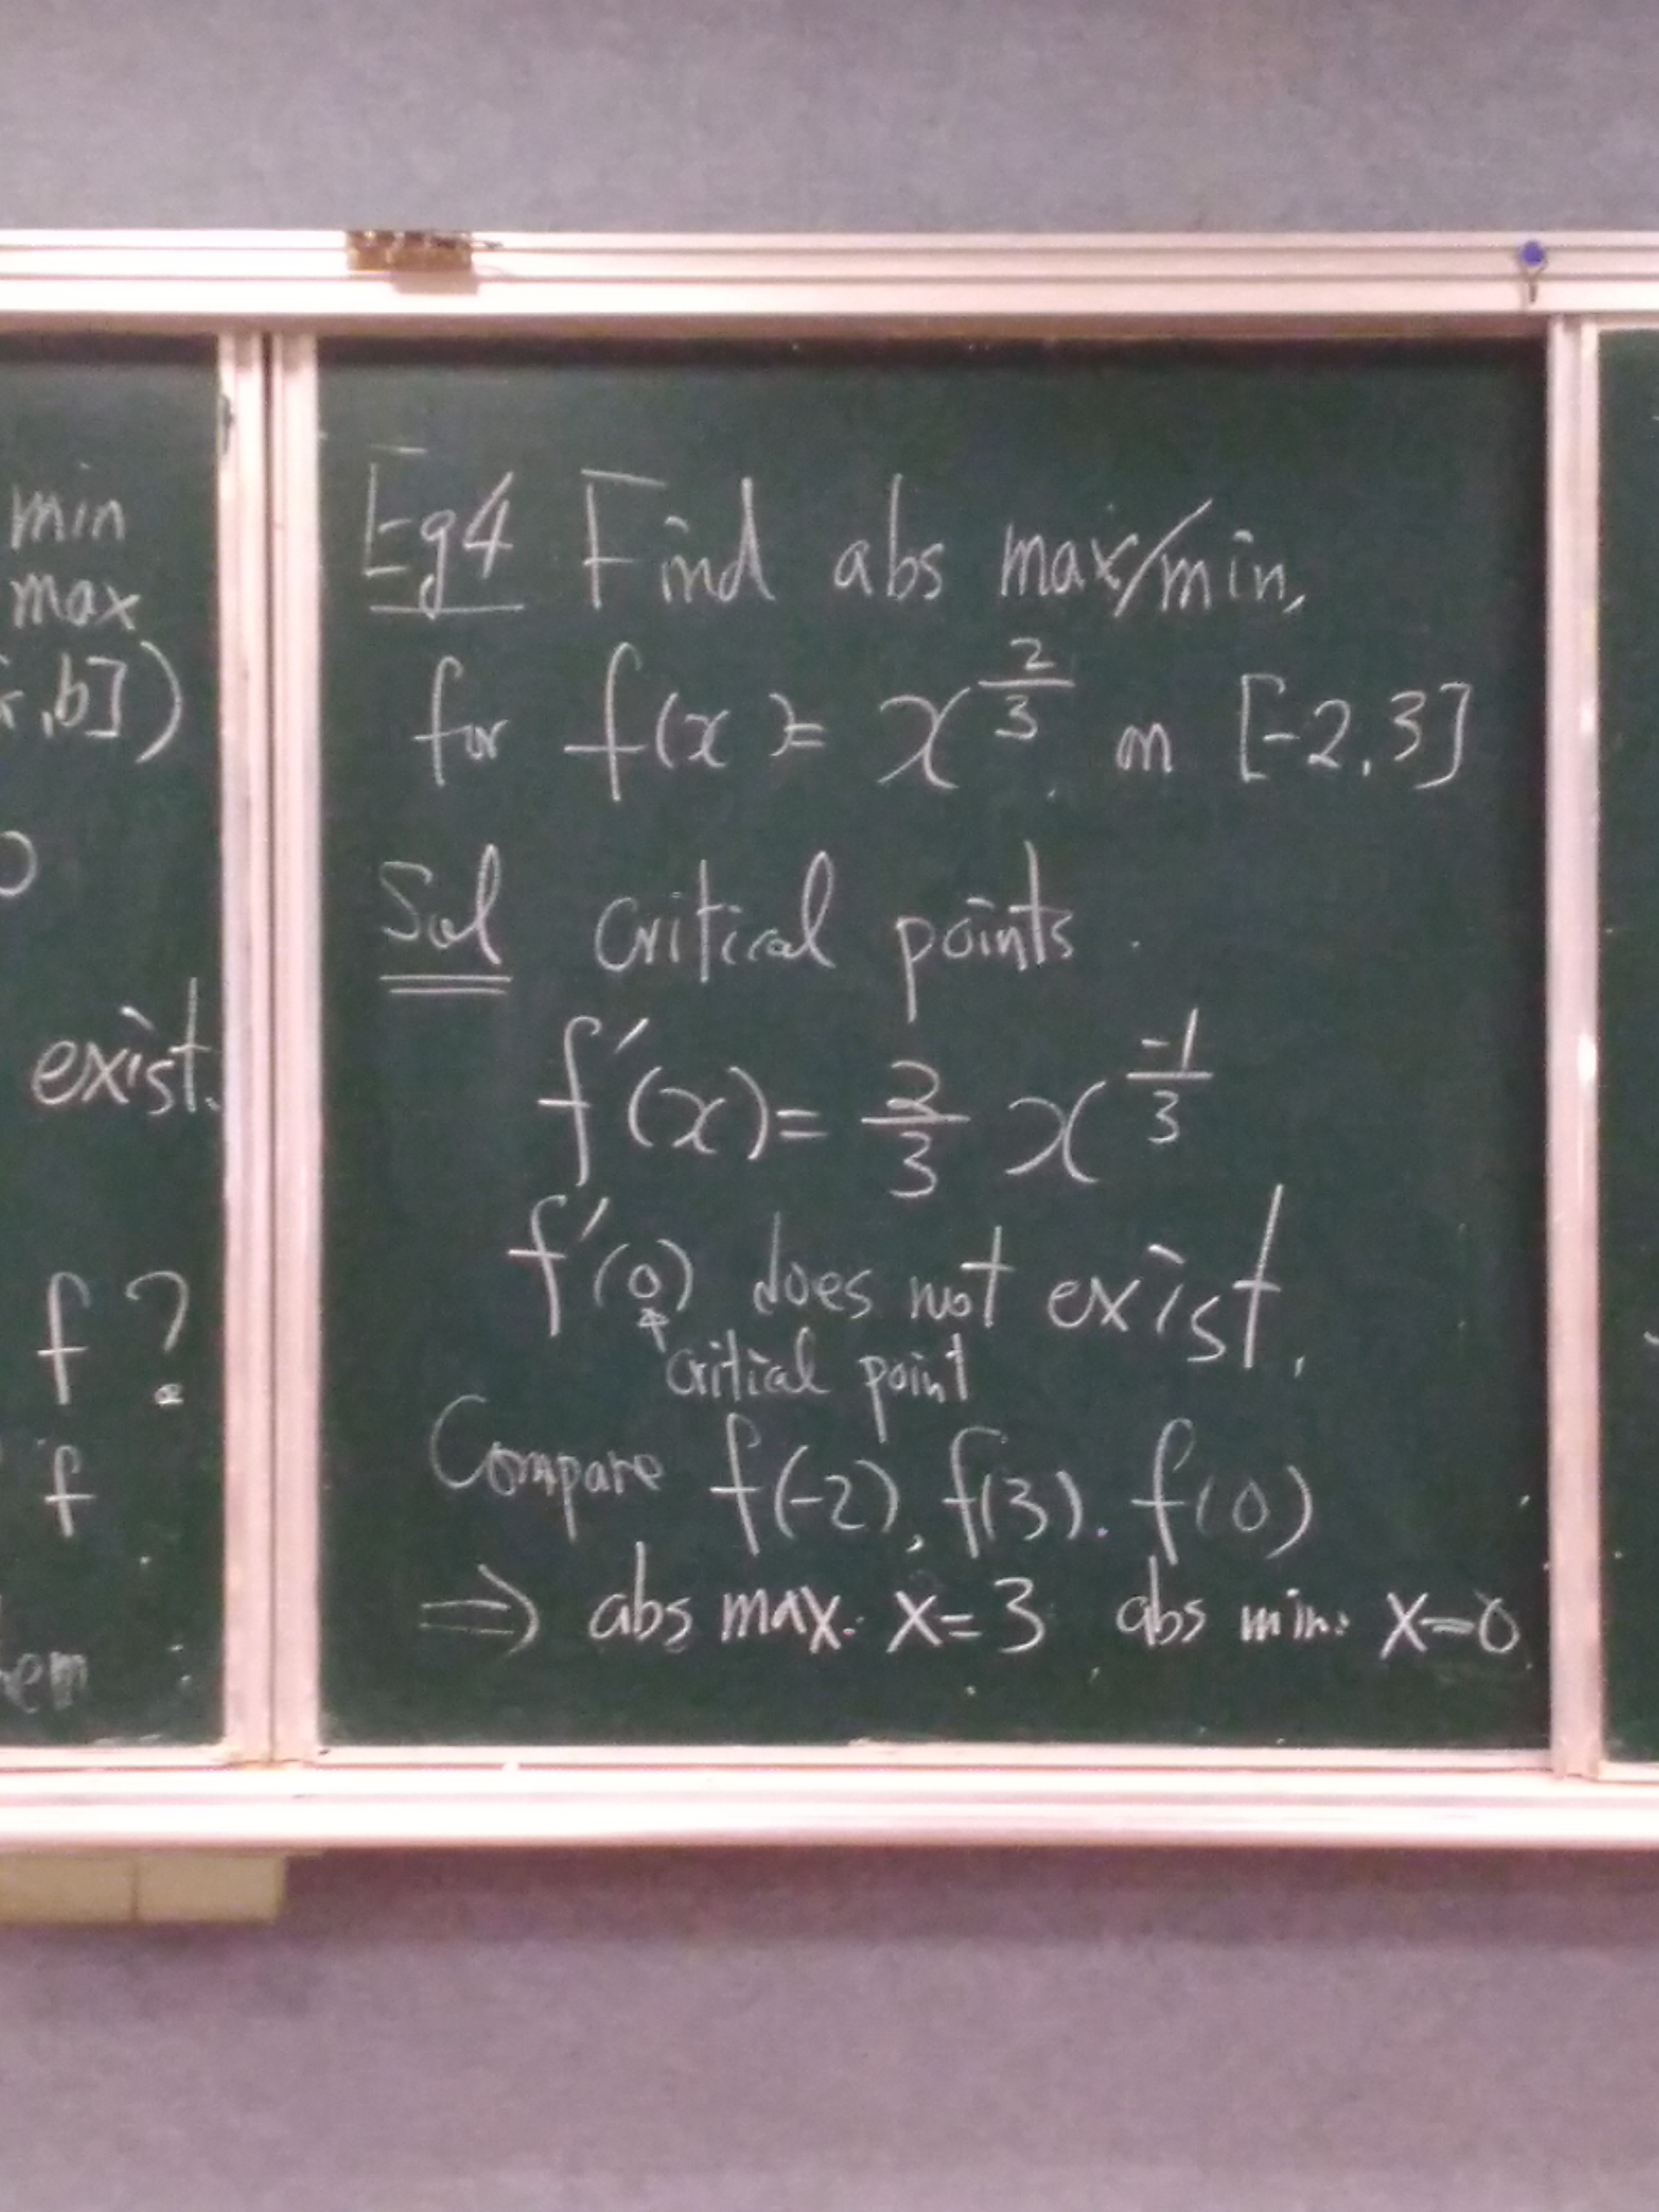 min
max
,b])
exist.
f?
f
em
Eg4 Find abs max/min,
for f(x)= x^{\frac{2}{3}} on [-2,3]
Sol critical points.
f'(x)= \frac{2}{3} x^{\frac{-1}{3}}
f'(0) does not exist.
critical point
Compare f(-2), f(3). f(0)
⇒ abs max. x=3 abs min: x=0